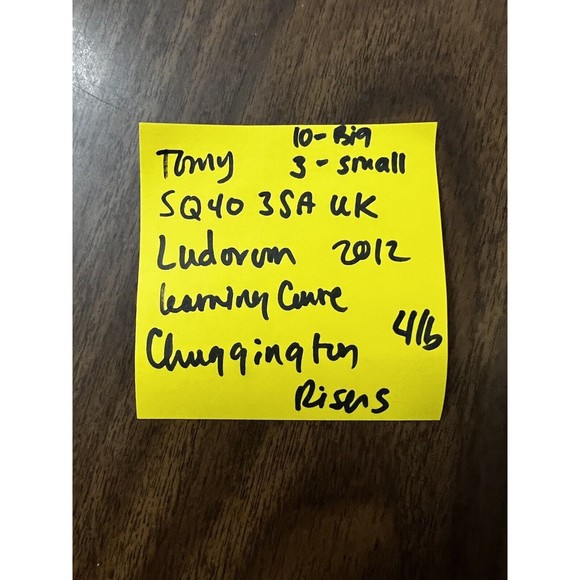 10 - Big
Tomy 3 - small
SQ40 3SA UK
Ludorum 2012
Learning Curve
Chuggington 4lb
Risers